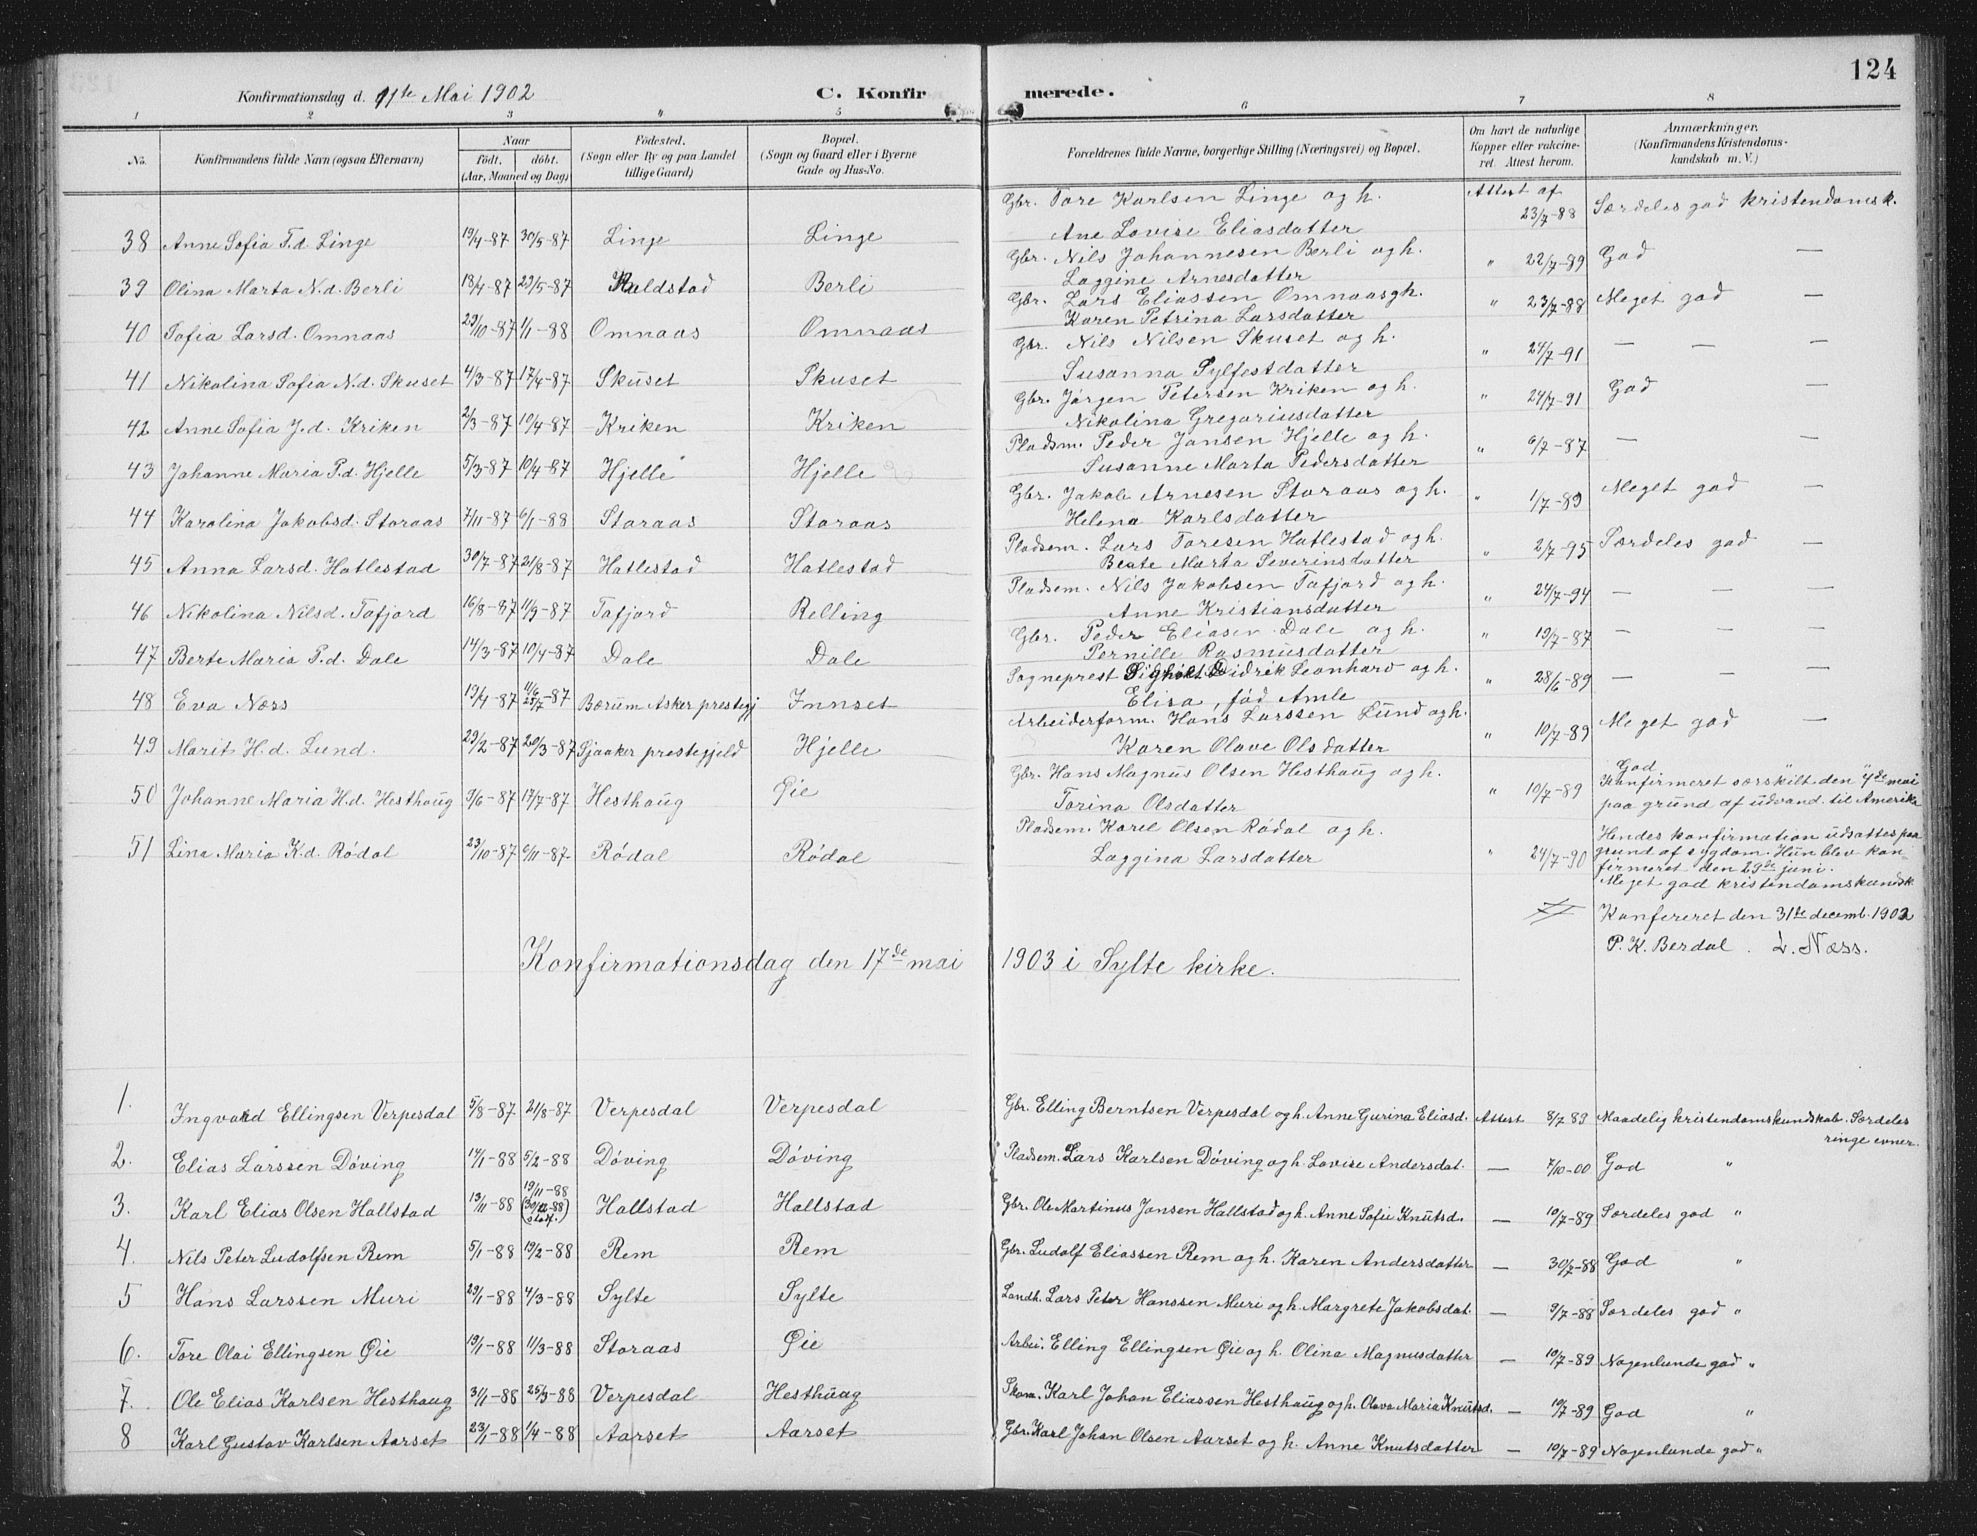 124
Konfirmationsdag d. 11te Mai 1902 C. Konfirmerede.
1 2 3 4 5 6 7 8
No. Konfirmandens fulde Navn (ogsaa Efternavn) Naar født. døbt. (Aar, Maaned og Dag) Fødested. (Sogn eller By og paa Landet tillige Gaard) Bopæl. (Sogn og Gaard eller i Byerne Gade og Hus-No. Forældrenes fulde Navne, borgerlige Stilling (Næringsvei) og Bopæl. Om havt de naturlige Kopper eller vakcineret. Attest herom. Anmærkninger. (Konfirmandens Kristendomskundskab m. V.)
38 Anne Sofia T.d. Linge 19/4-87 30/5-87 Linge Linge Gbr. Tore Karlsen Linge og h. Ane Lovise Eliasdatter Attest af 23/7-88 Særdeles god kristendomsk.
39 Olina Marta N.d. Berli 18/4-87 29/5-87 Huldstad Berli Gbr. Nils Johannesen Berli og h. Laggine Arnesdatter " 22/7-89 God —
40 Sofia Larsd. Omnaas 29/10-87 1/1-88 Omnaas Omnaas Gbr. Lars Eliassen Omnaas og h. Karen Petrina Larsdatter " 23/7-88 Meget god —
41 Nikolina Sofia N.d. Skuset 4/3-87 17/4-87 Skuset Skuset Gbr. Nils Nilsen Skuset og h. Susanna Sylfestdatter " 24/7-91 — — —
42 Anne Sofia J.d. Kriken 2/3-87 10/4-87 Kriken Kriken Gbr. Jørgen Petersen Kriken og h. Nikolina Gregoriusdatter " 24/7-91 God —
43 Johanne Maria P.d. Hjelle 5/3-87 10/4-87 Hjelle Hjelle Pladsm. Peder Jansen Hjelle og h. Susanne Marta Pedersdatter " 6/7-87 — —
44 Karolina Jakobsd. Storaas 7/11-87 6/1-88 Storaas Storaas Gbr. Jakob Arnesen Storaas og h. Helena Karlsdatter " 1/7-89 Meget god —
45 Anna Larsd. Hatlestad 30/7-87 21/8-87 Hatlestad Hatlestad Pladsem. Lars Toresen Hatlestad og h. Beate Marta Severinsdatter " 2/7-95 Særdeles god —
46 Nikolina Nilsd. Tafjord 16/8-87 11/9-87 Tafjord Relling Pladsem. Nils Jakobsen Tafjord og h. Anne Kristiansdatter " 24/7-94 — —
47 Berte Maria P.d. Dale 14/3-87 10/4-87 Dale Dale Gbr. Peder Eliasen Dale og h. Pernille Rasmusdatter " 19/7-87 — —
48 Eva Næss 19/4-87 11/6 25/7-87 Bærum Asker prestegj Innset Sogneprest Didrik Leonhard og h. Elisa, fød Amle " 28/6-89 — —
49 Marit H.d. Lund. 23/2-87 20/3-87 Sjaaker prestegjeld Hjelle Arbeiderform. Hans Larssen Lund og h. Karen Olave Olsdatter " 10/7-89 Meget god —
50 Johanne Maria H.d. Hesthaug 9/6-87 17/7-87 Hesthaug Øie Gbr. Hans Magnus Olsen Hesthaug og h. Torina Olsdatter " 10/7-89 God Konfirmeret særskilt den 4de mai paa grund af udvand. til Amerika
51 Lina Maria K.d. Rødal 23/10-87 6/11-87 Rødal Rødal Pladsem. Karel Olsen Rødal og h. Laggina Larsdatter " 24/7-90 Hendes konfirmation udsattes paa grund af sygdom. Hun blev konfirmeret den 29de juni. Meget god kristendomskundsk
Konfereret den 31te decemb. 1902
P. K. Berdal. L. Næss.
Konfirmationsdag den 17de mai 1903 i Sylte kirke.
1. Ingvald Ellingsen Verpesdal 5/8-87 21/8-87 Verpesdal Verpesdal Gbr. Elling Berntsen Verpesdal og h. Anne Gurina Eliasd. Attest 8/7 89 Maadelig kristendomskundskab. Særdeles ringe evner.
2. Elias Larssen Døving 14/1-88 5/2-88 Døving Døving Pladsem. Lars Karlsen Døving og h. Lovise Andersdat. — 7/10-00 God "
3. Karl Elias Olsen Hallstad 13/11-88 19/11-88 Hallstad Hallstad Gbr. Ole Martinus Jansen Hallstad og h. Anne Sofie Knutsd. — 10/7-89 Særdeles god "
4. Nils Peter Ludolfsen Rem 5/1-88 19/2-88 Rem Rem Gbr. Ludolf Eliassen Rem og h. Karen Andersdatter — 30/7-88 God "
5 Hans Larssen Muri 29/1-88 4/3-88 Sylte Sylte Landh. Lars Peter Hanssen Muri og h. Margrete Jakobsdat. — 9/7-88 Særdeles god "
6. Tore Olai Ellingsen Øie 19/1-88 11/3-88 Storaas Øie Arbei. Elling Ellingsen Øie og h. Olina Magnusdatter — 10/7-89 Nogenlunde god "
7. Ole Elias Karlsen Hesthaug 31/1-88 25/3-88 Verpesdal Hesthaug Skom. Karl Johan Eliassen Hesthaug og h. Olava Maria Knutsd. — 10/7-89 God "
8 Karl Gustav Karlsen Aarset 23/1-88 1/4-88 Aarset Aarset Gbr. Karl Johan Olsen Aarset og h. Anne Knutsdatter — 10/7-89 Nogenlunde god "